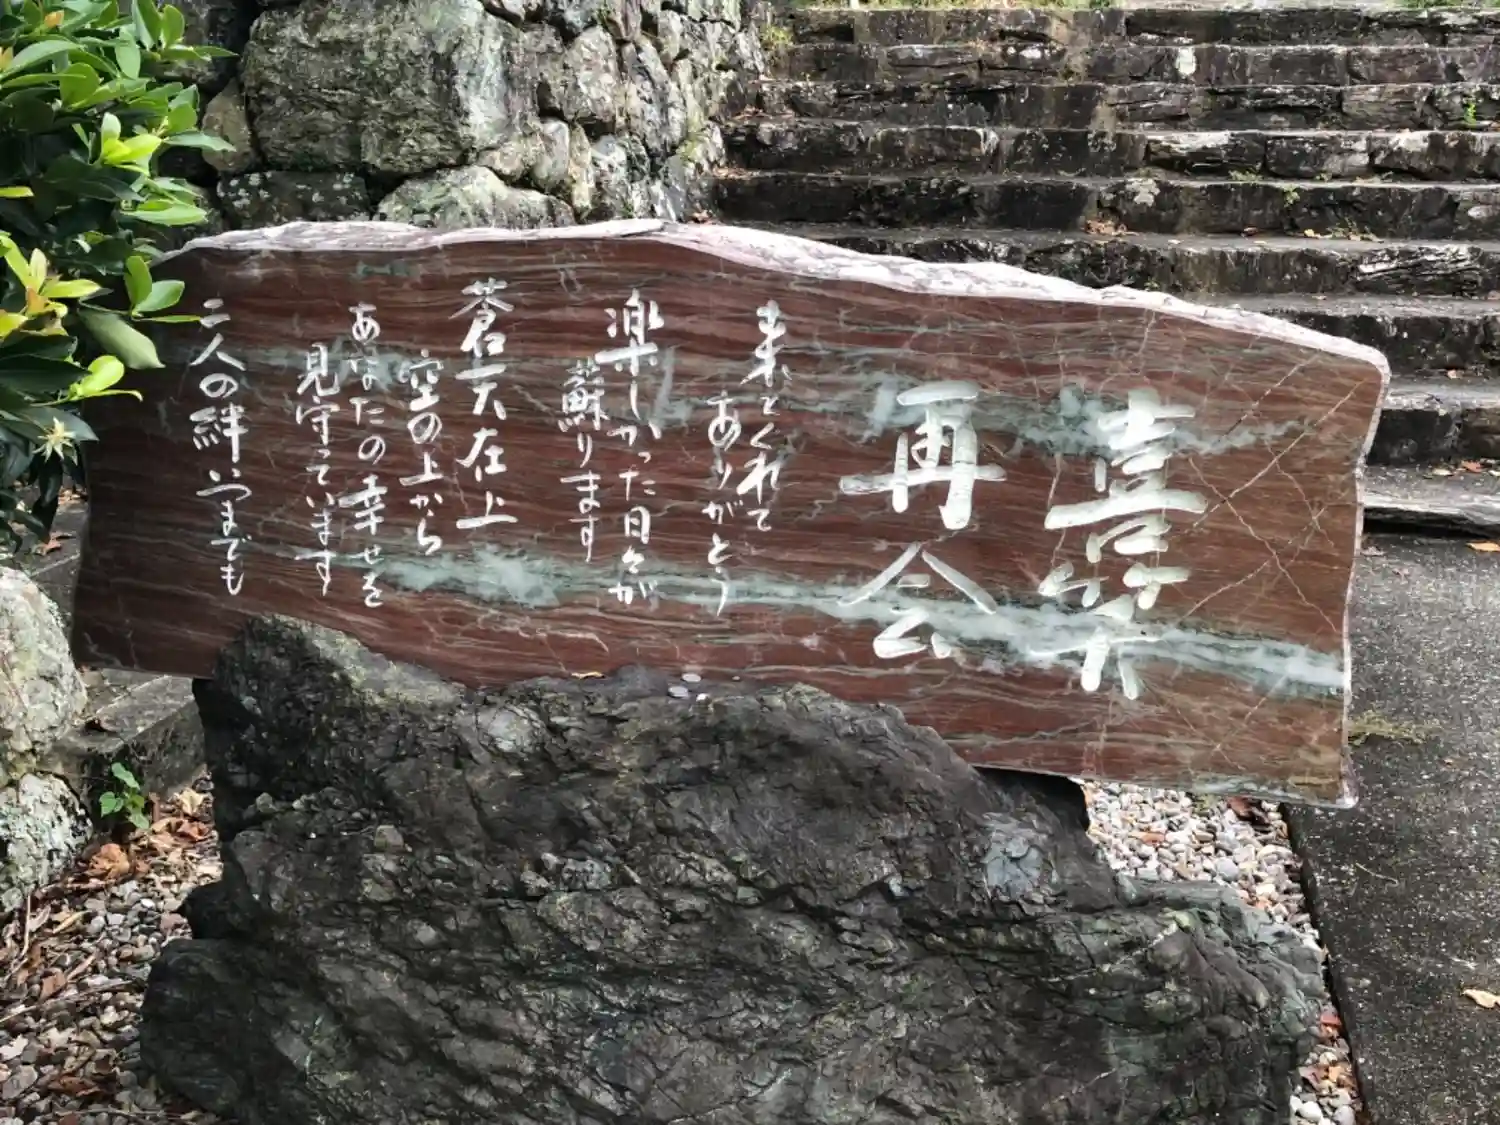 喜笑
再会
来てくれて
ありがとう
楽しかった日々が
蘇ります
蒼天在上
空の上から
あなたの幸せを
見守っています
二人の絆いつまでも